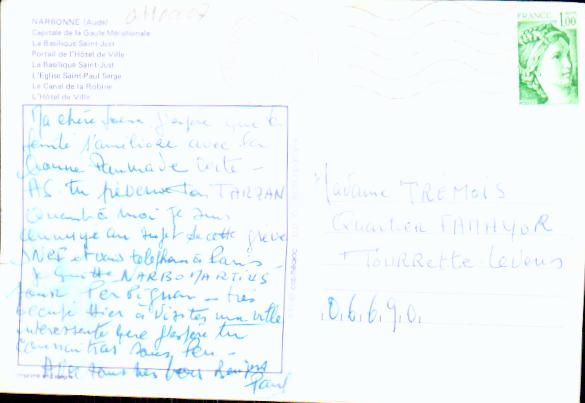 0110007
NARBONNE (Aude)
Capitale de la Gaule Méridionale
La Basilique Saint-Just
Portail de l'Hôtel de Ville
La Basilique Saint-Just
L'Eglise Saint-Paul Serge
Le Canal de la Robine
L'Hôtel de Ville
FRANCE 1,00
Ma chère j'espère que ta
avec la
bonne
As tu TARZAN
Quant à moi je suis
ennuyé au sujet de cette grève
et vous téléphone à Paris
Je quitte NARBO MARTIUS
pour Perpignan - très
occupé Hier à visiter ma ville
intéressante que j'espère tu
connaitras sous peu -
tous mes bons baisers
Paul
Madame TRÉMOIS
Quartier
Tourrette Levens
0.6.6.9.0.